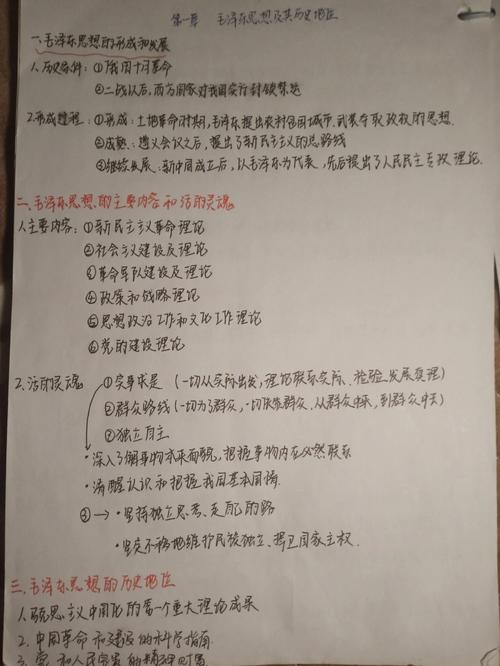 第一章 毛泽东思想及其历史地位
一、毛泽东思想的形成和发展
1.历史条件：①俄国十月革命
②二战以后，西方国家对我国实行封锁禁运
2.形成过程：①形成：土地革命时期，毛泽东提出农村包围城市，武装夺取政权的思想.
②成熟：遵义会议之后，提出了新民主主义的总路线
③继续发展：新中国成立后，以毛泽东为代表，先后提出了人民民主专政理论.
二、毛泽东思想的主要内容和活的灵魂
1.主要内容：①新民主主义革命理论
②社会主义建设及理论
③革命军队建设及理论
④政策和战略理论
⑤思想政治工作和文化工作理论
⑥党的建设理论
2.活的灵魂 ①实事求是（一切从实际出发，理论联系实际、检验发展真理）
②群众路线（一切为了群众，一切依靠群众、从群众中来，到群众中去）
③独立自主
•深入了解事物本来面貌，把握事物内在必然联系
•清醒认识和把握我国基本国情.
③→•坚持独立思考、走自己的路
•坚定不移地维护民族独立、捍卫国家主权.
三、毛泽东思想的历史地位
1.马克思主义中国化的第一个重大理论成果
2.中国革命和建设的科学指南
3.党和人民宝贵的精神财富